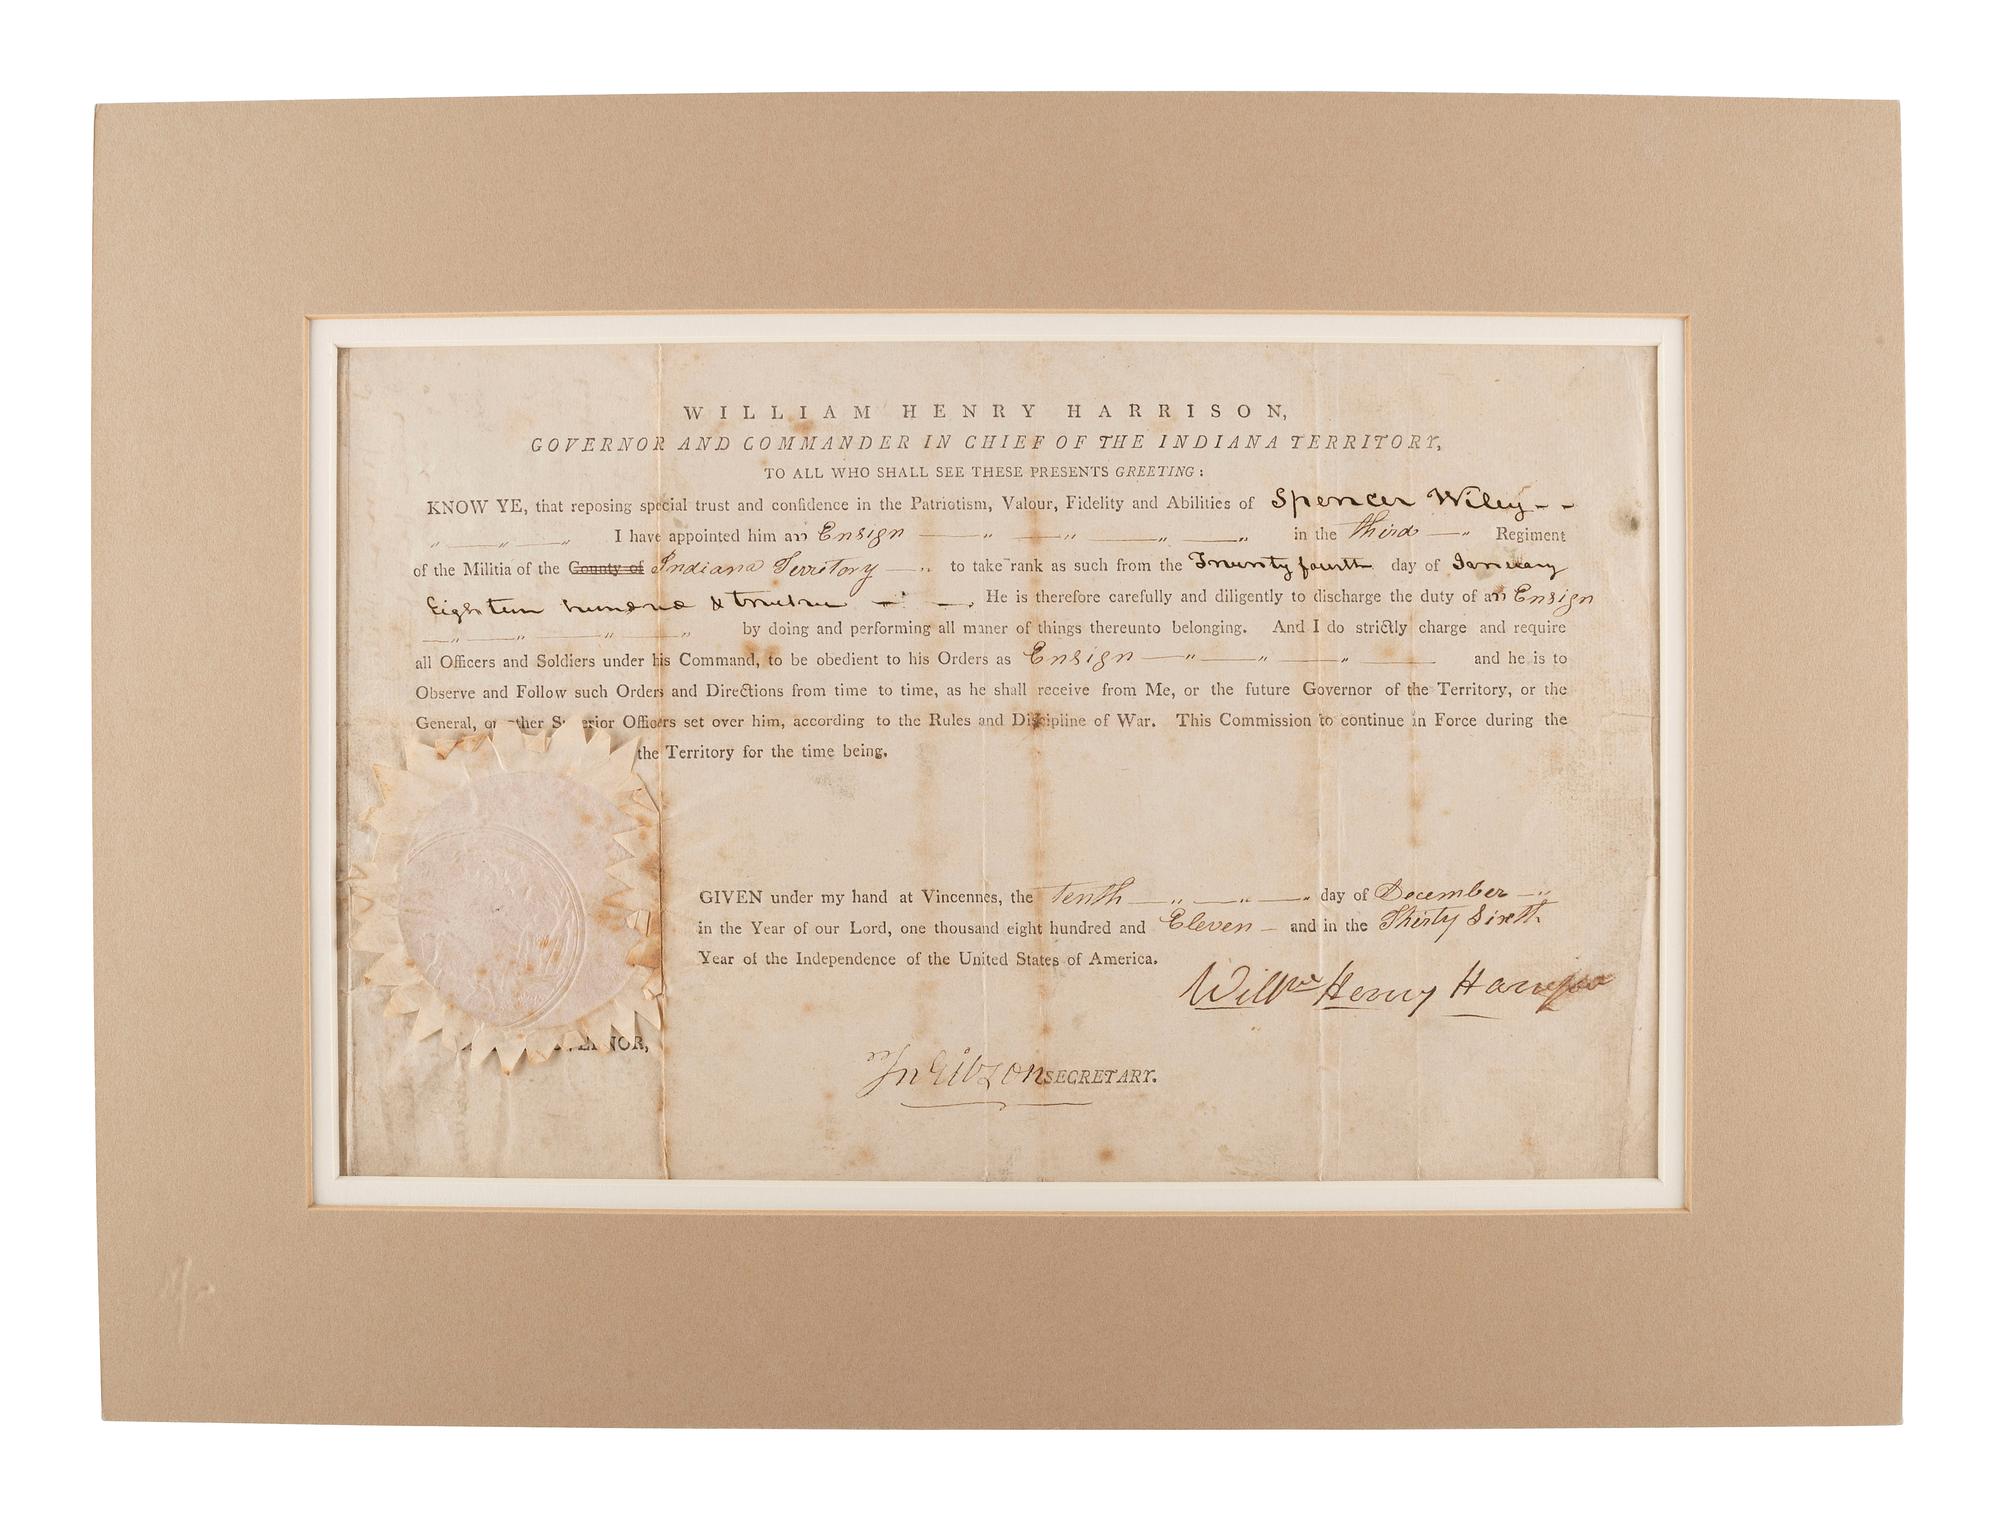 WILLIAM HENRY HARRISON,
GOVERNOR AND COMMANDER IN CHIEF OF THE INDIANA TERRITORY,
TO ALL WHO SHALL SEE THESE PRESENTS GREETING:
KNOW YE, that reposing special trust and confidence in the Patriotism, Valour, Fidelity and Abilities of Spencer Wiley - -
I have appointed him an Ensign in the third Regiment
of the Militia of the County of Indiana Territory to take rank as such from the Twenty fourth day of January
Eighteen hundred & twelve He is therefore carefully and diligently to discharge the duty of an Ensign
by doing and performing all maner of things thereunto belonging. And I do strictly charge and require
all Officers and Soldiers under his Command, to be obedient to his Orders as Ensign and he is to
Observe and Follow such Orders and Directions from time to time, as he shall receive from Me, or the future Governor of the Territory, or the
General, or other Superior Officers set over him, according to the Rules and Discipline of War. This Commission to continue in Force during the
the Territory for the time being.
GIVEN under my hand at Vincennes, the tenth day of December
in the Year of our Lord, one thousand eight hundred and Eleven - and in the Thirty Sixth
Year of the Independence of the United States of America.
Willm Henry Harrison
Jn Gibson SECRETARY.